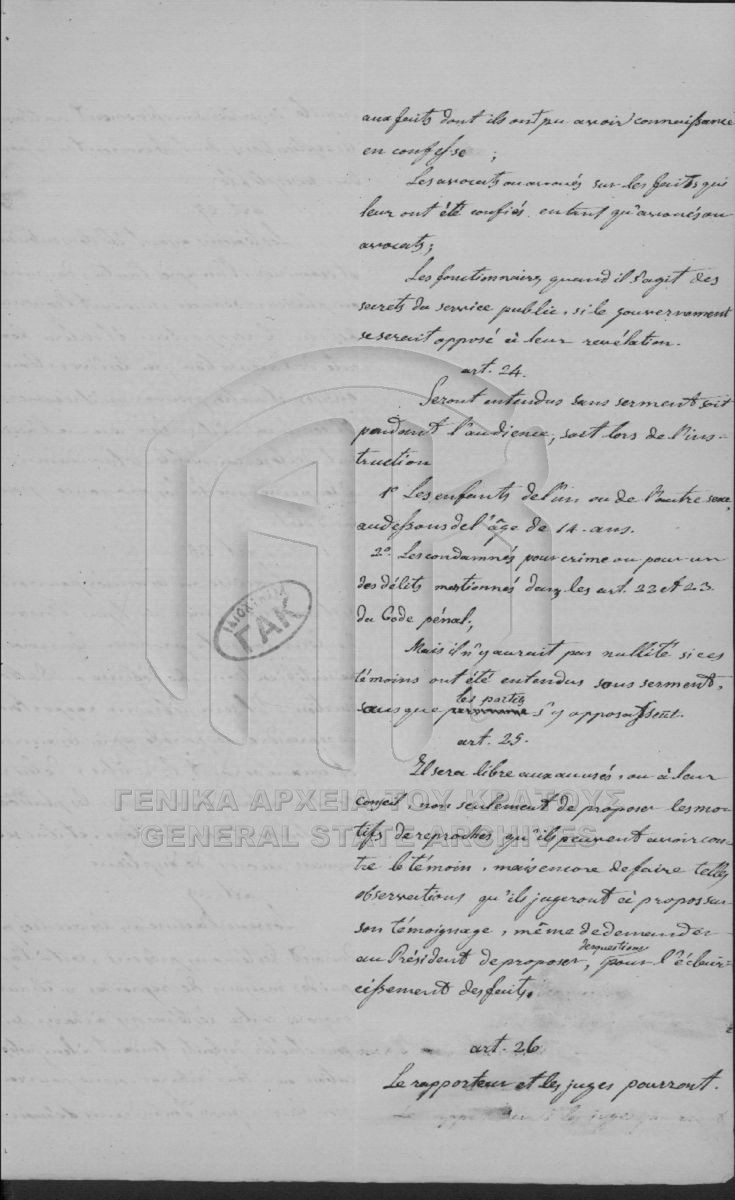 aux faits dont ils ont pu avoir connaissance
en confesse ;
Les avocats ou avoués sur les faits qui
leur ont été confiés en tant qu'avoués ou
avocats ;
Les fonctionnaires, quand il s'agit des
secrets du service public, si le gouvernement
se serait opposé à leur revélation.
art. 24.
Seront entendus sans serment soit
pendant l'audience, soit lors de l'ins-
truction
1º Les enfants de l'un ou de l'autre sexe,
au dessous de l'âge de 14 ans.
2º Les condamnés pour crime ou pour un
des délits mentionnés dans les art. 22 et 23
du Code pénal ;
Mais il n'y aurait pas nullité si ces
témoins ont été entendus sous serment,
sans que les parties s'y opposassent.
art. 25.
Il sera libre aux accusés, ou à leur
Conseil, non seulement de proposer les mo-
tifs de reproches qu'il peuvent avoir con-
tre le témoin, mais encore de faire telles
observations qu'ils jugeront à propos sur
son témoignage, même de demander
au Président de proposer, des questions pour l'éclair-
cissement des faits.
art. 26
Le rapporteur et les juges pourront.
ΙΔΙΟΚΤΗΣΙΑ
ΓΑΚ
ΓΕΝΙΚΑ ΑΡΧΕΙΑ ΤΟΥ ΚΡΑΤΟΥΣ
GENERAL STATE ARCHIVES